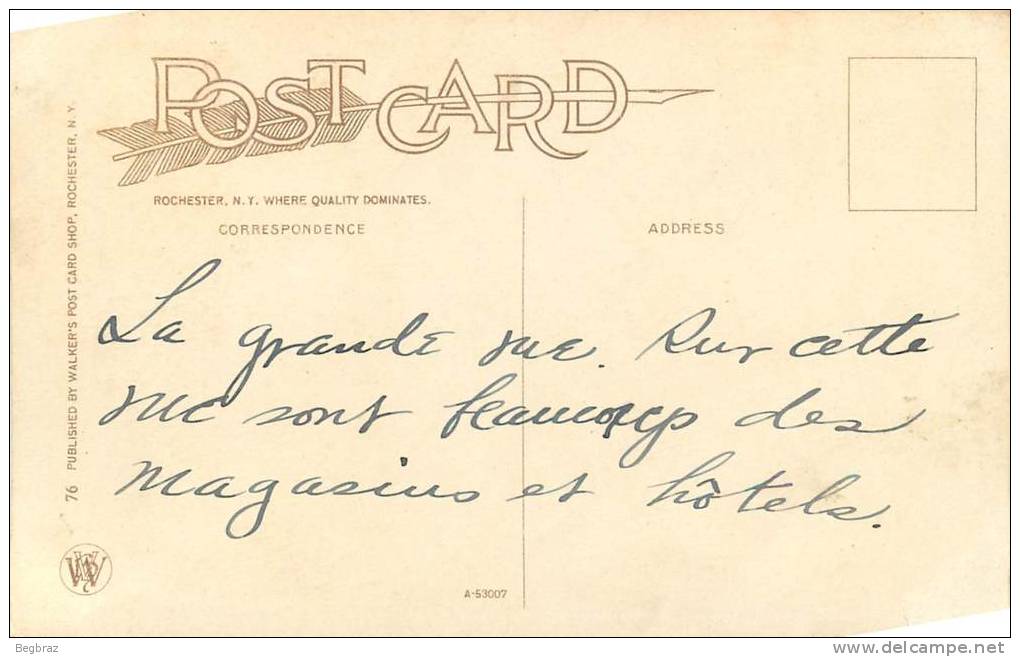 POST CARD
ROCHESTER, N.Y. WHERE QUALITY DOMINATES.
CORRESPONDENCE
ADDRESS
La grande rue. Sur cette
rue sont beaucoup des
magasins et hôtels.
76 PUBLISHED BY WALKER'S POST CARD SHOP, ROCHESTER, N.Y.
A-53007
Begbraz
www.delcampe.net